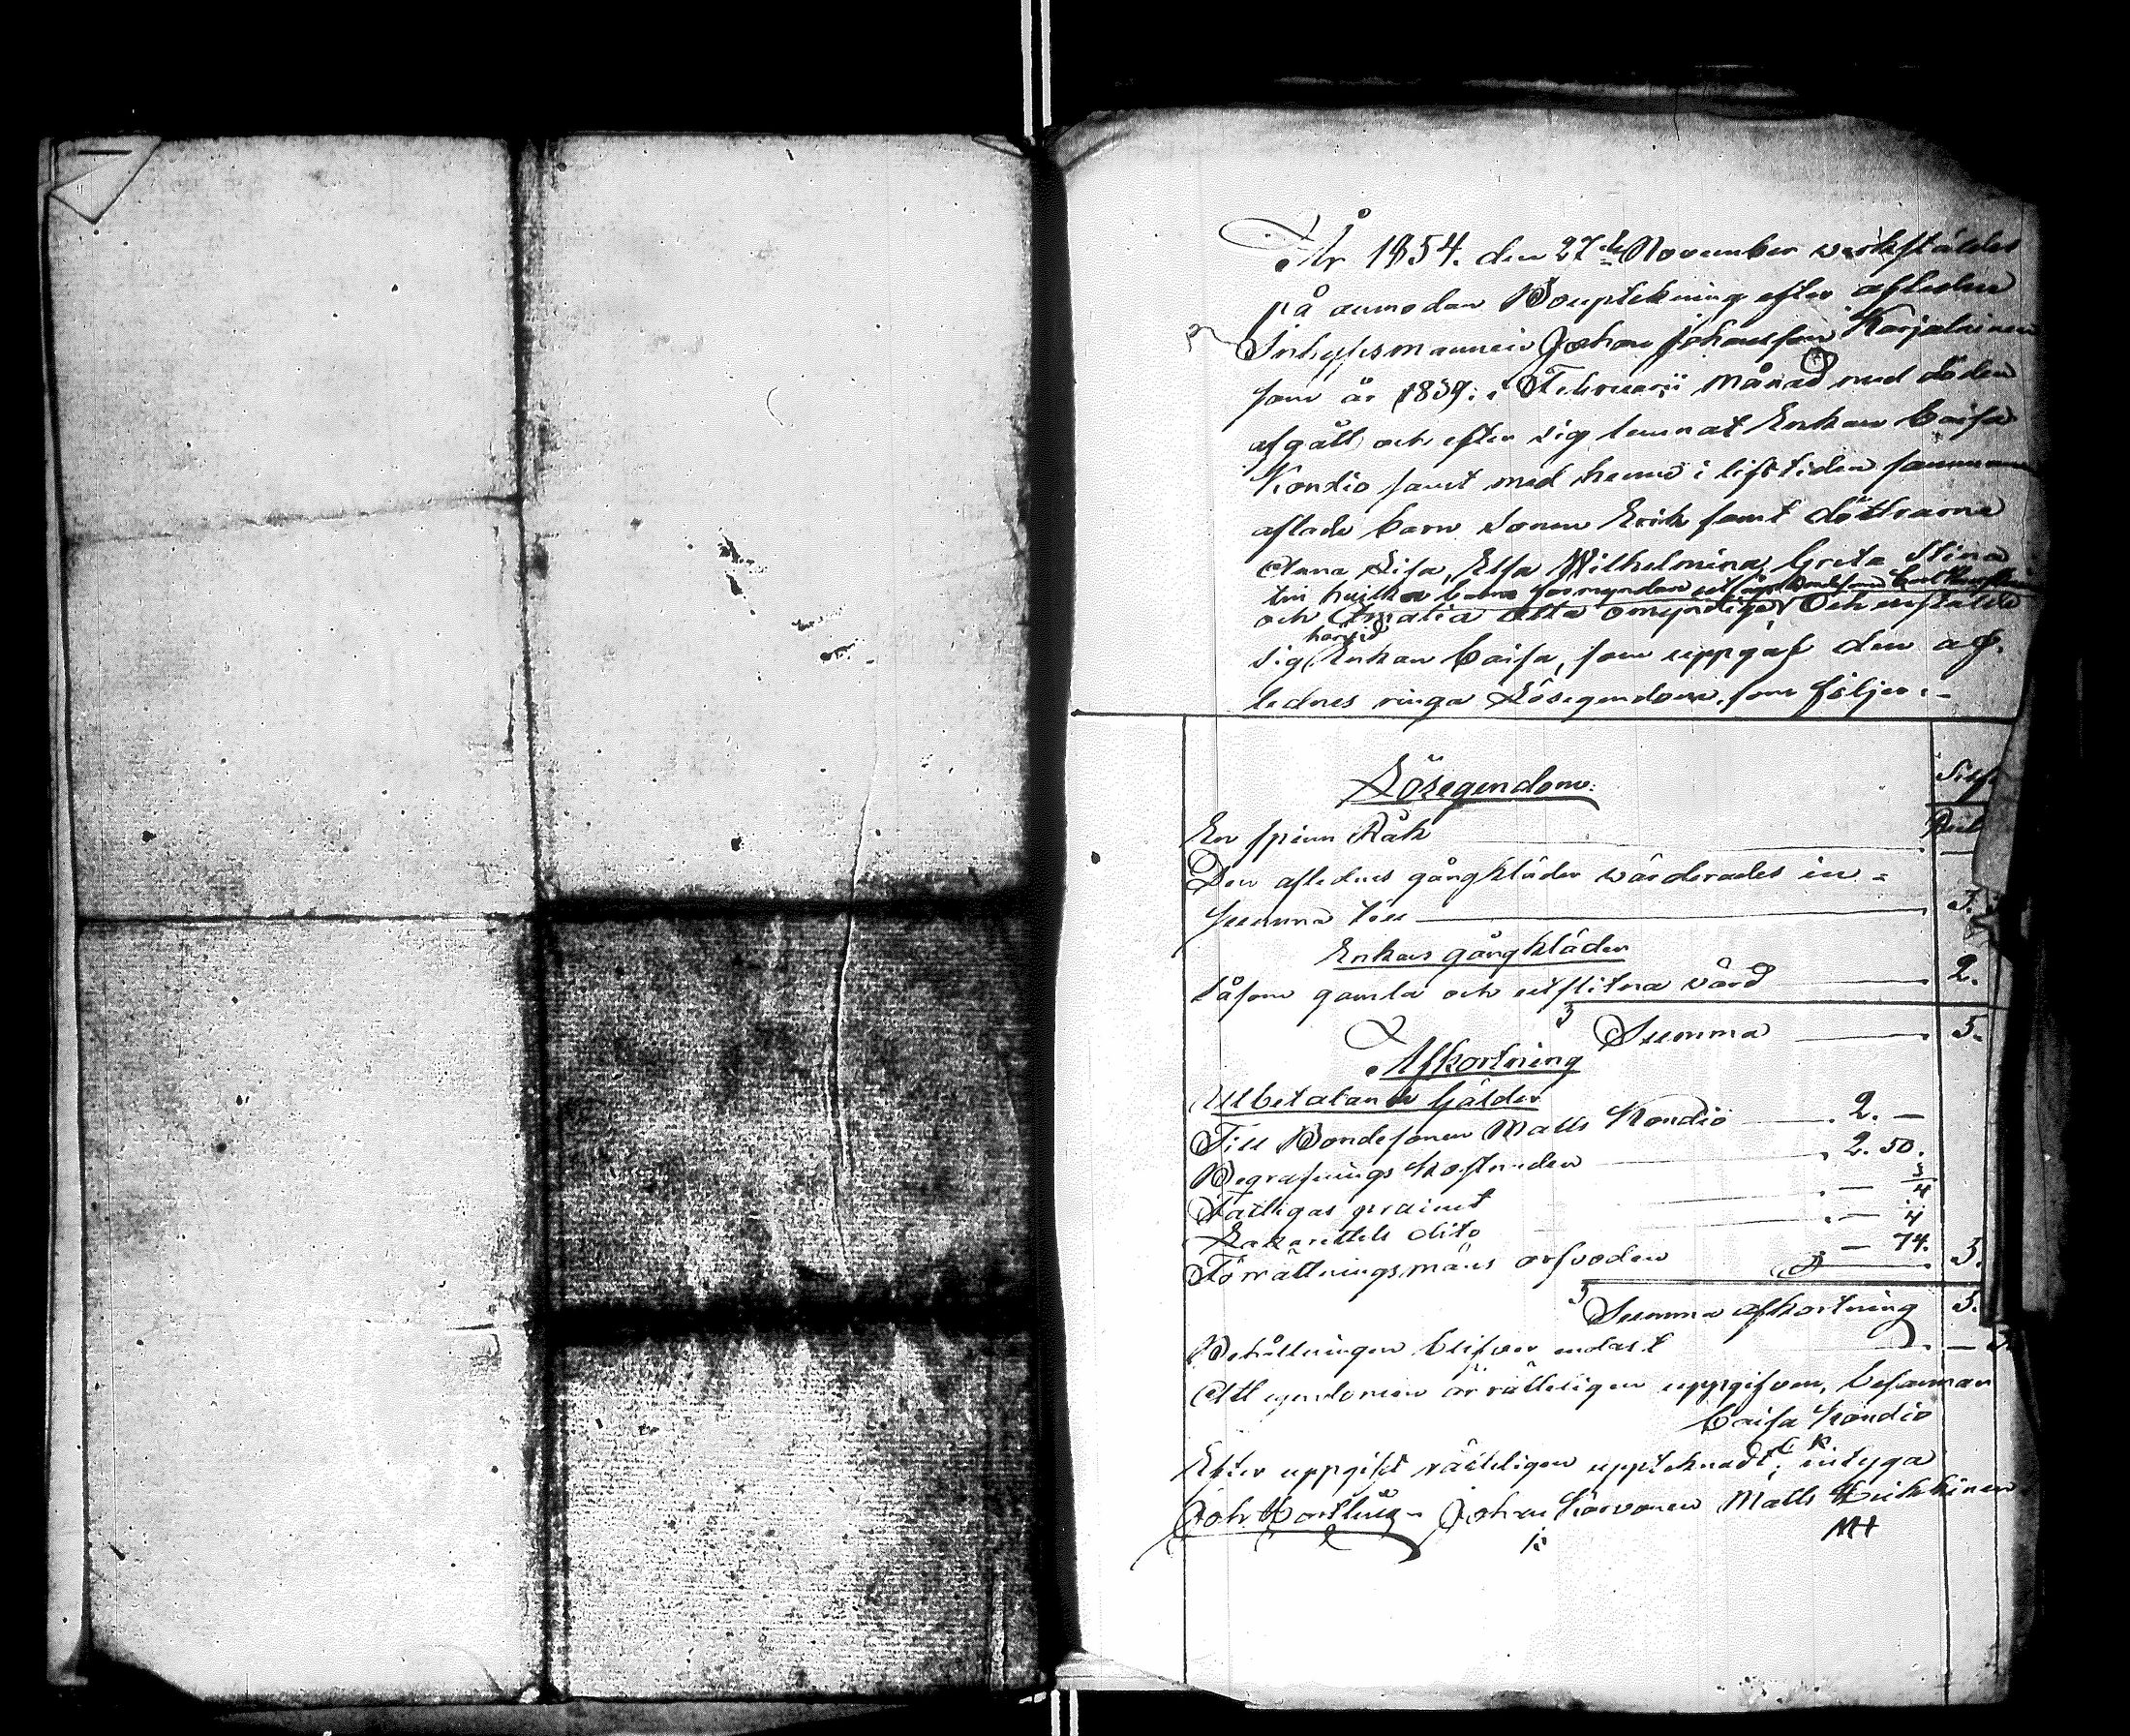 År 1854. den 27de November werkstäldes
på anmodan Bouptekning efter aflidne
Inhysesmannen Johan Johansson Karjalainen
som år 1859. i Februarii månad med döden
afgått och efter sig lemnat Enkan Caisa
Kondio samt med henne i lifstiden samman
aflade barn Sonen Erik samt döttrarna
Anna Lisa, Elsa Wilhelmina, Greta Stina
och Amalia alla omyndiga, Och instälde
härvid
sig Enkan Caisa, som uppgaf den af-
lednes ringa Lösegendom som följer:-
Lösegendom.
Silf
Rub
En spinn Råk
Den aflednes gångkläder wärderades in-
summa till 3.
Enkans gångkläder
Såsom gamla och utslitna värd 2.
Summa 5.
Afkortning
Utbetalande Gälder
Till Bondesonen Matts Kondio 2. —
Begrafnings kostnaden 2. 50.
Fattigas procent — 3/4
Lazarettels dito — 1/4
Förrättningsmäns arfvoden — 74. 5.
Summa afkortning 5.
Behållningen blifver endast —
Att egendomen är rätteligen uppgifven, besannar
Caisa Kondio
C K
Efter uppgift rätteligen upptecknadt; intyga
Joh Johan Korvonen Matts Heikkinen
MH